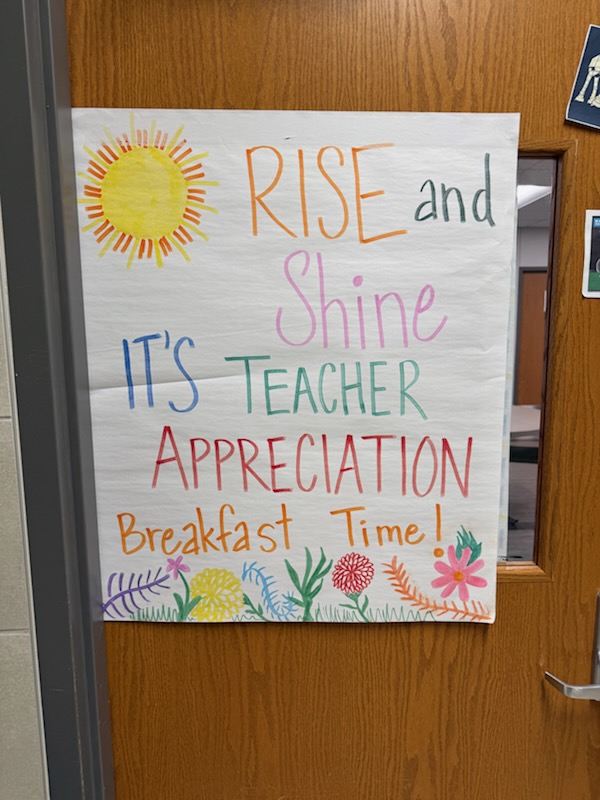 RISE and
Shine
IT'S TEACHER
APPRECIATION
Breakfast Time!